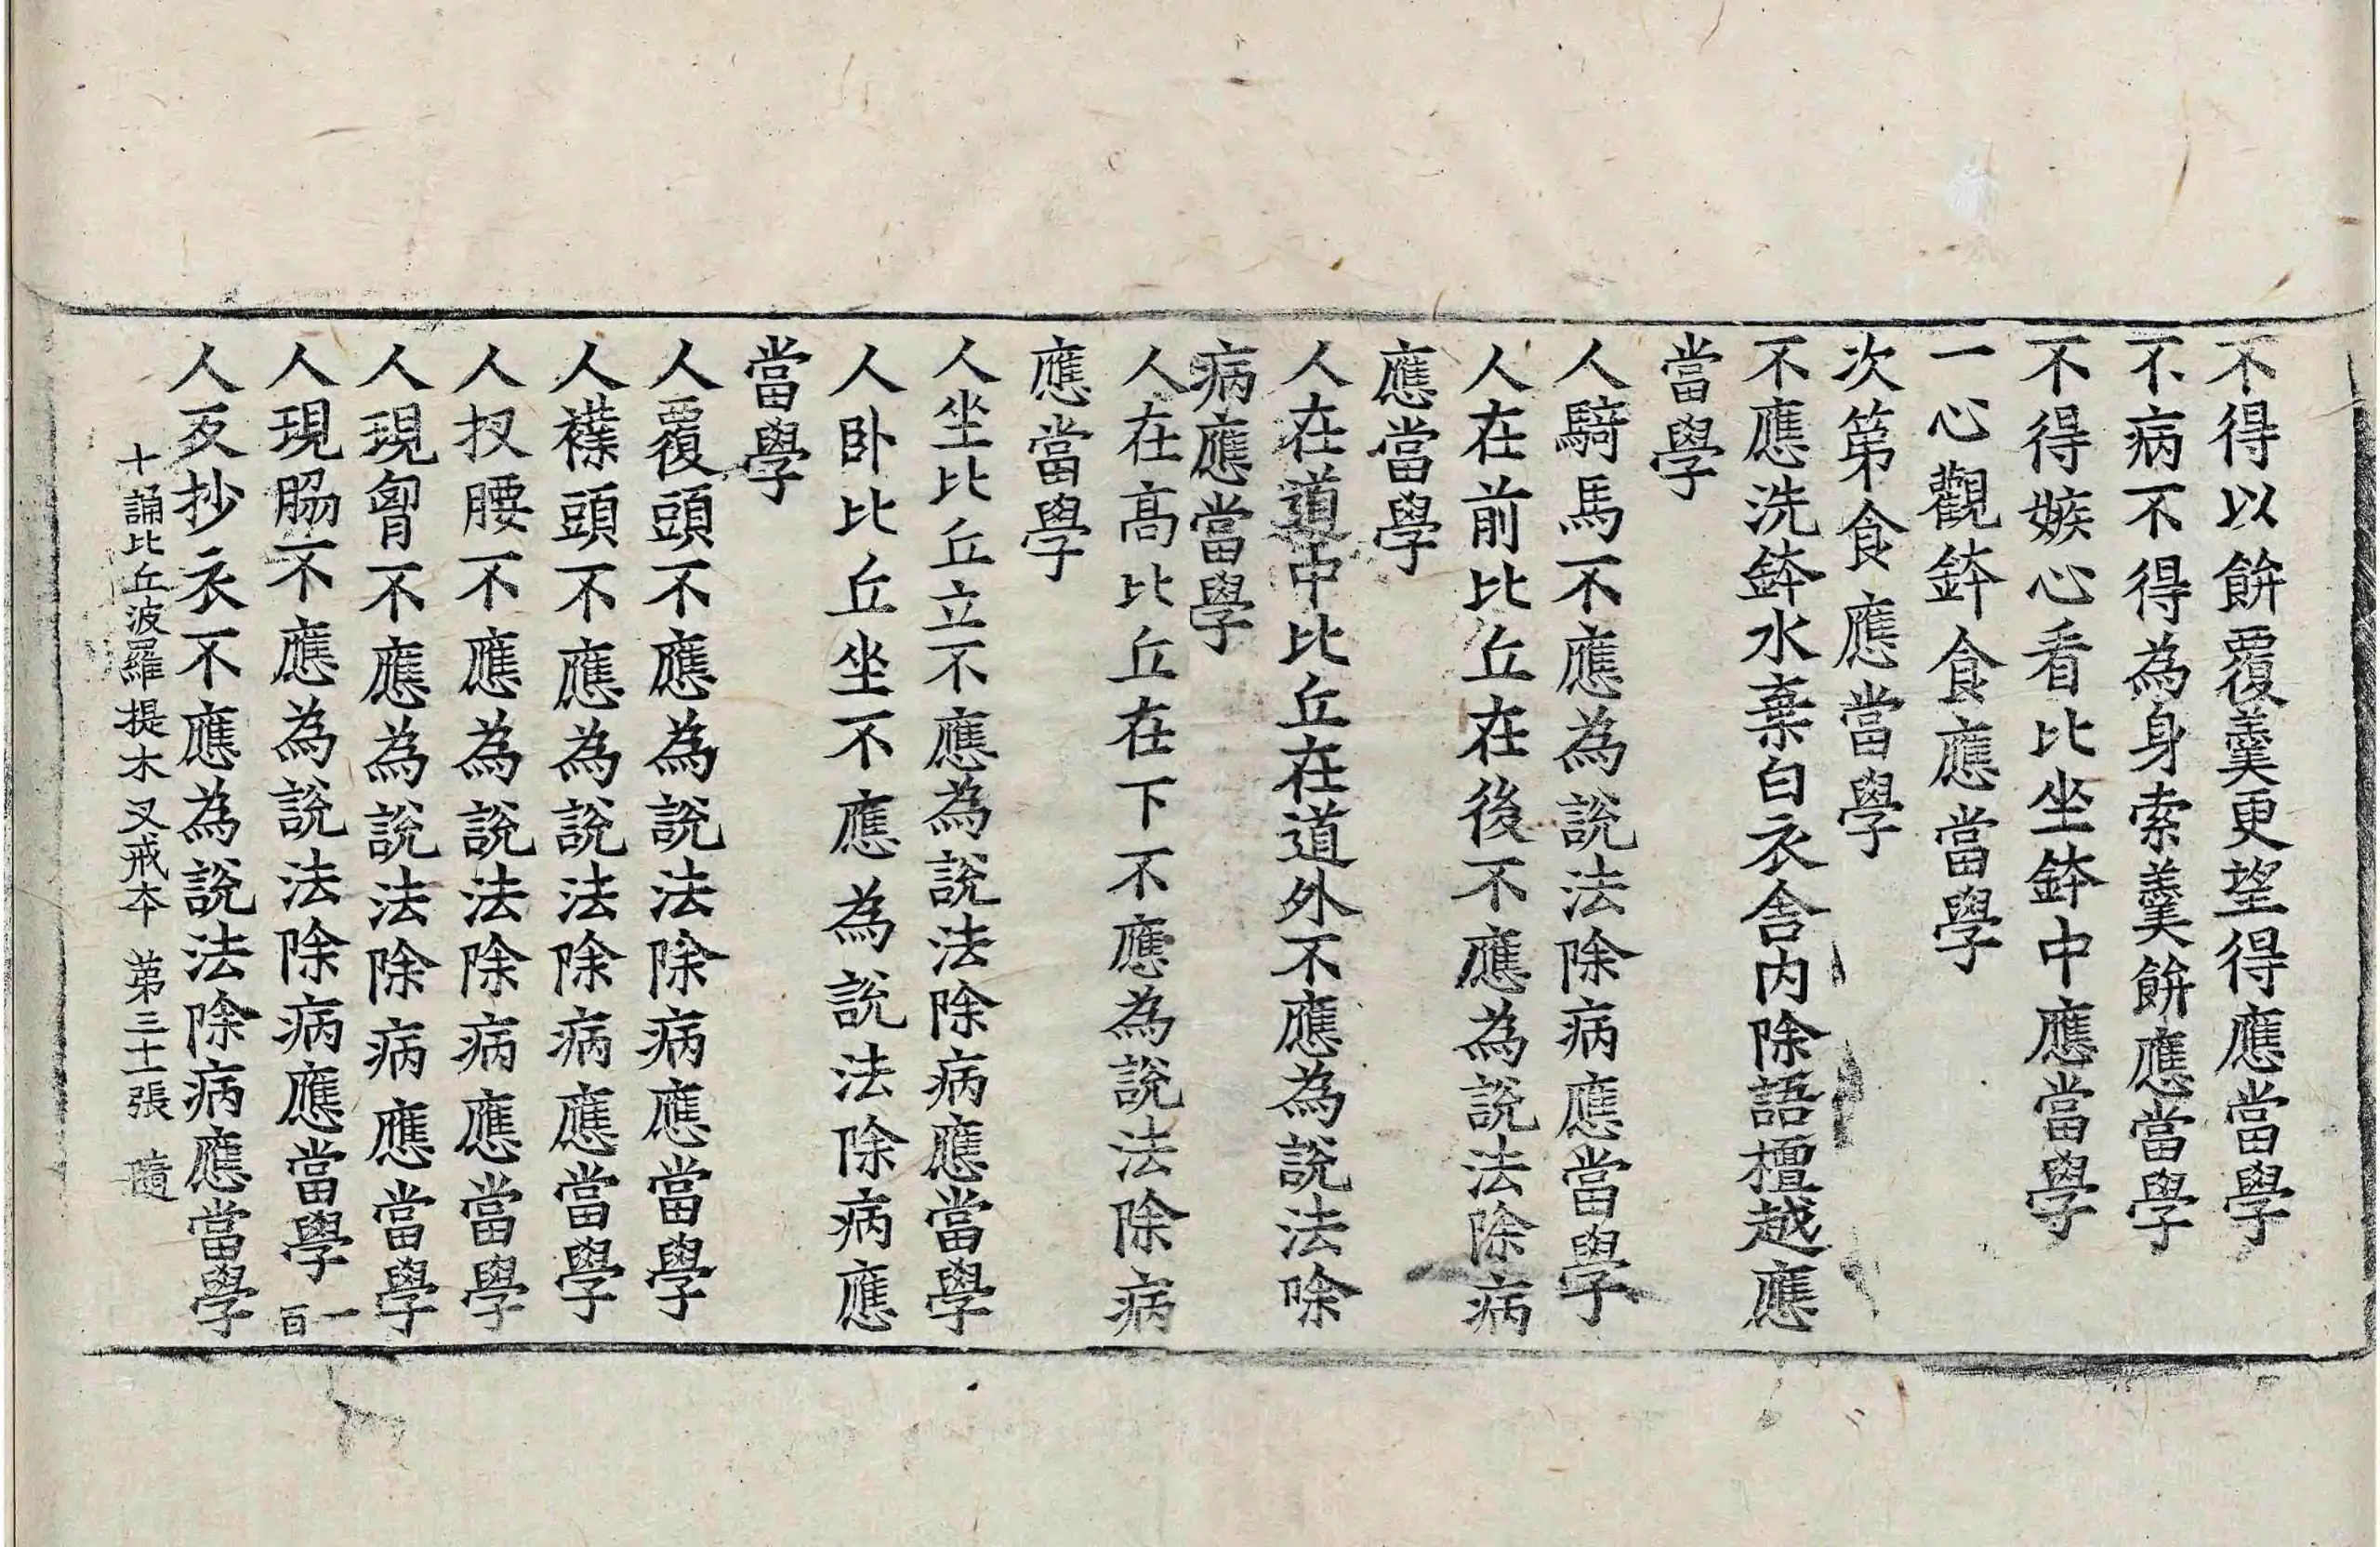 不得以餅覆羹更望得應當學
不病不得為身索羹餅應當學
不得嫉心看比坐鉢中應當學
一心觀鉢食應當學
次第食應當學
不應洗鉢水棄白衣舍内除語檀越應
當學
人騎馬不應為說法除病應當學
人在前比丘在後不應為說法除病
應當學
人在道中比丘在道外不應為說法除
病應當學
人在高比丘在下不應為說法除病
應當學
人坐比丘立不應為說法除病應當學
人卧比丘坐不應為說法除病應
當學
人覆頭不應為說法除病應當學
人襆頭不應為說法除病應當學
人扠腰不應為說法除病應當學
人現胷不應為說法除病應當學
人現脇不應為說法除病應當學 一百
人反抄衣不應為說法除病應當學
十誦比丘波羅提木叉戒夲 苐三十一張 隨